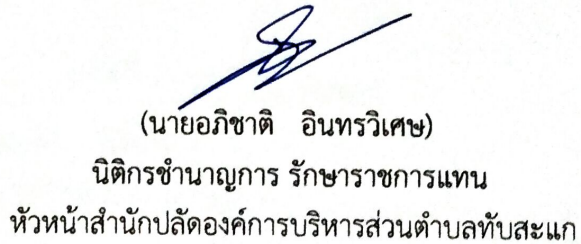 (นายอภิชาติ อินทรวิเศษ)
นิติกรชำนาญการ รักษาราชการแทน
หัวหน้าสำนักปลัดองค์การบริหารส่วนตำบลทับสะแก